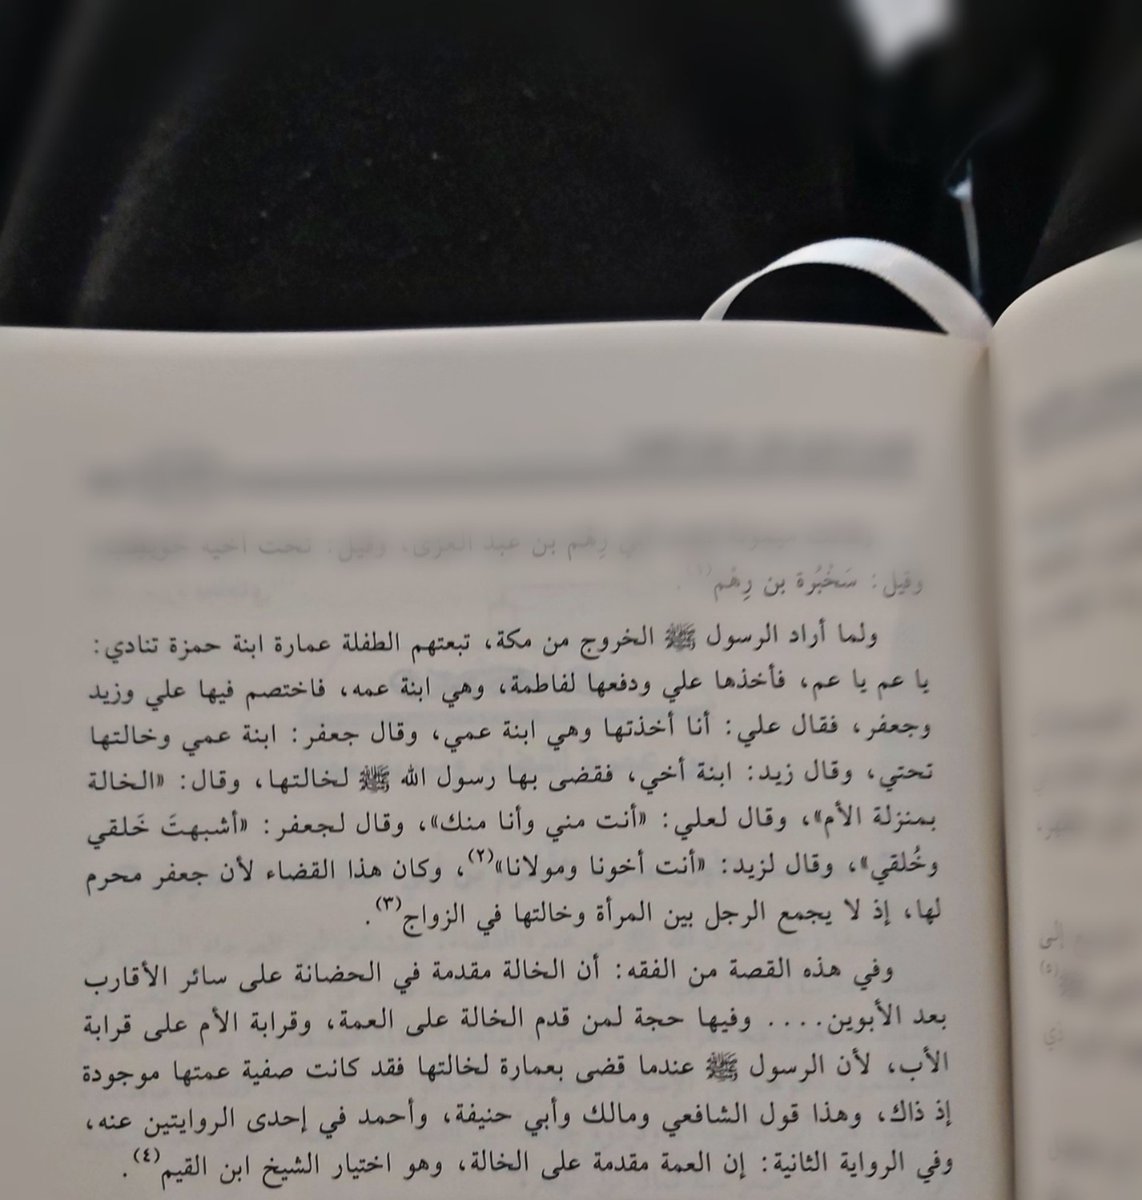 رهم بن عبد العزى، وقيل: تحت أخيه حويطب
وقيل: سَخْبُرة بن رِهْم(١).
ولما أراد الرسول ﷺ الخروج من مكة، تبعتهم الطفلة عمارة ابنة حمزة تنادي:
يا عم يا عم، فأخذها علي ودفعها لفاطمة، وهي ابنة عمه، فاختصم فيها علي وزيد
وجعفر، فقال علي: أنا أخذتها وهي ابنة عمي، وقال جعفر: ابنة عمي وخالتها
تحتي، وقال زيد: ابنة أخي، فقضى بها رسول الله ﷺ لخالتها، وقال: «الخالة
بمنزلة الأم»، وقال لعلي: «أنت مني وأنا منك»، وقال لجعفر: «أشبهتَ خَلقي
وخُلقي»، وقال لزيد: «أنت أخونا ومولانا»(٢)، وكان هذا القضاء لأن جعفر محرم
لها، إذ لا يجمع الرجل بين المرأة وخالتها في الزواج(٣).
وفي هذه القصة من الفقه: أن الخالة مقدمة في الحضانة على سائر الأقارب
بعد الأبوين.... وفيها حجة لمن قدم الخالة على العمة، وقرابة الأم على قرابة
الأب، لأن الرسول ﷺ عندما قضى بعمارة لخالتها فقد كانت صفية عمتها موجودة
إذ ذاك، وهذا قول الشافعي ومالك وأبي حنيفة، وأحمد في إحدى الروايتين عنه،
وفي الرواية الثانية: إن العمة مقدمة على الخالة، وهو اختيار الشيخ ابن القيم(٤).